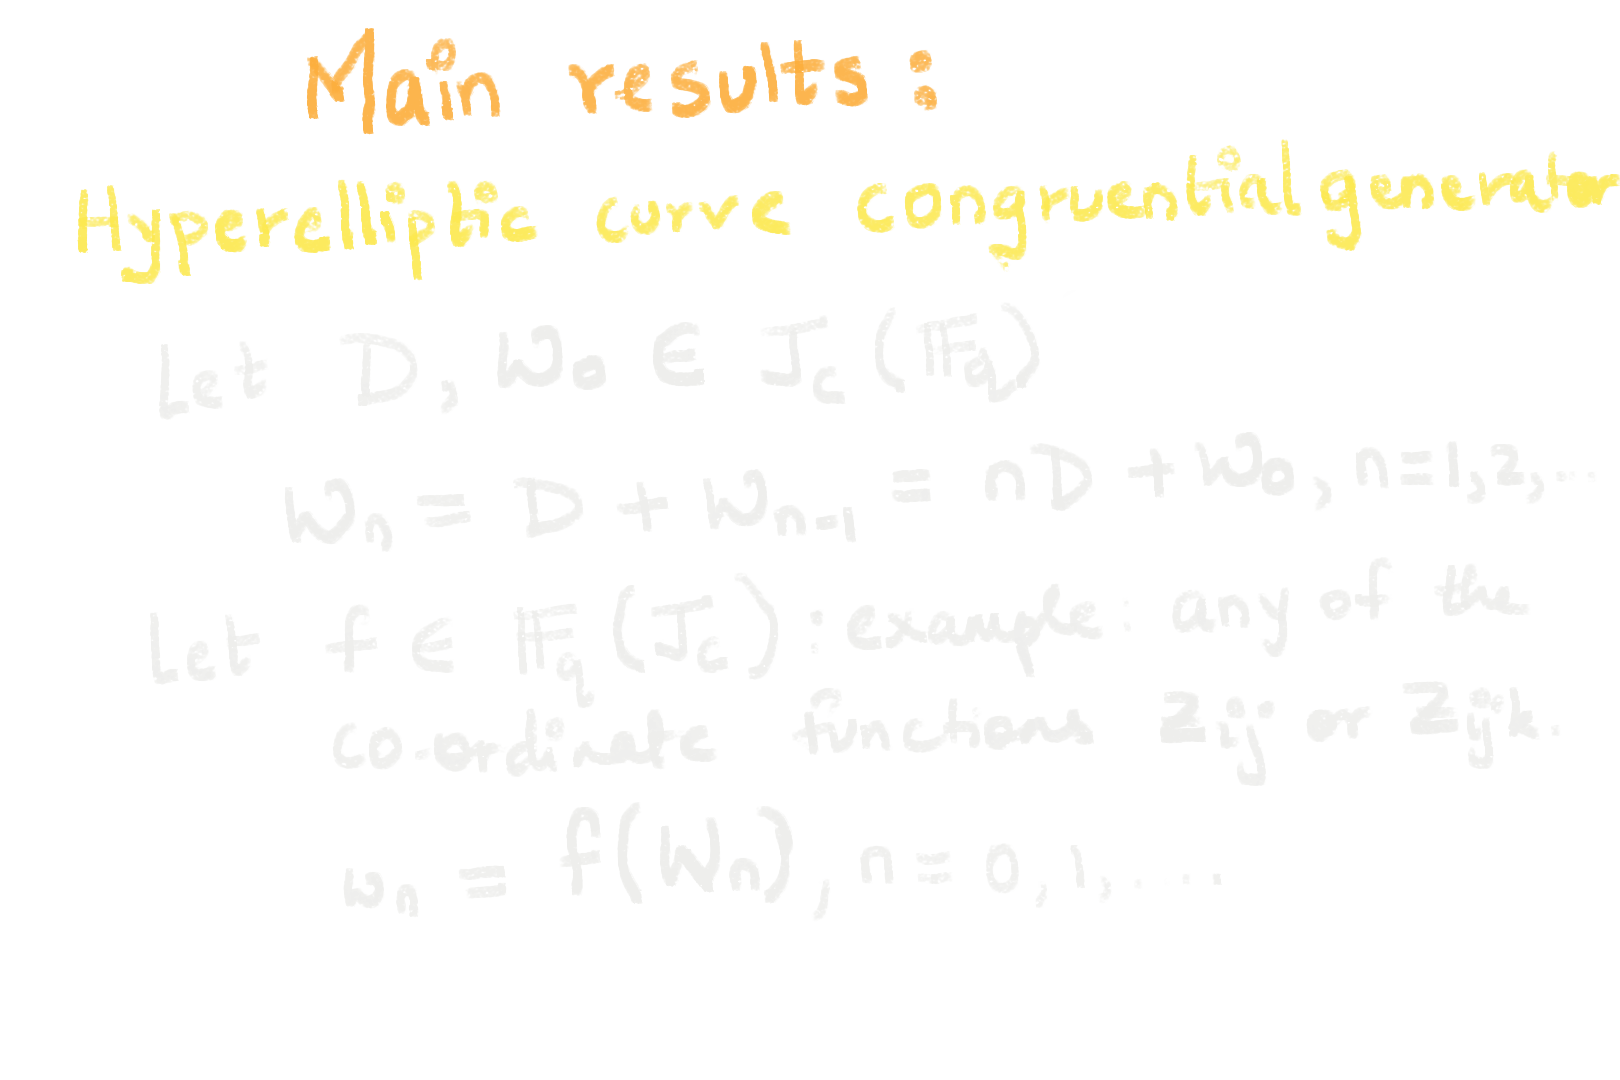 Main results:
Hyperelliptic curve congruential generator
Let D, W₀ ∈ J_C(𝔽_q)
Wₙ = D + Wₙ₋₁ = nD + W₀, n=1,2,...
Let f ∈ 𝔽_q(J_C): example: any of the
co-ordinate functions z_ij or z_ijk.
wₙ = f(Wₙ), n = 0,1,....